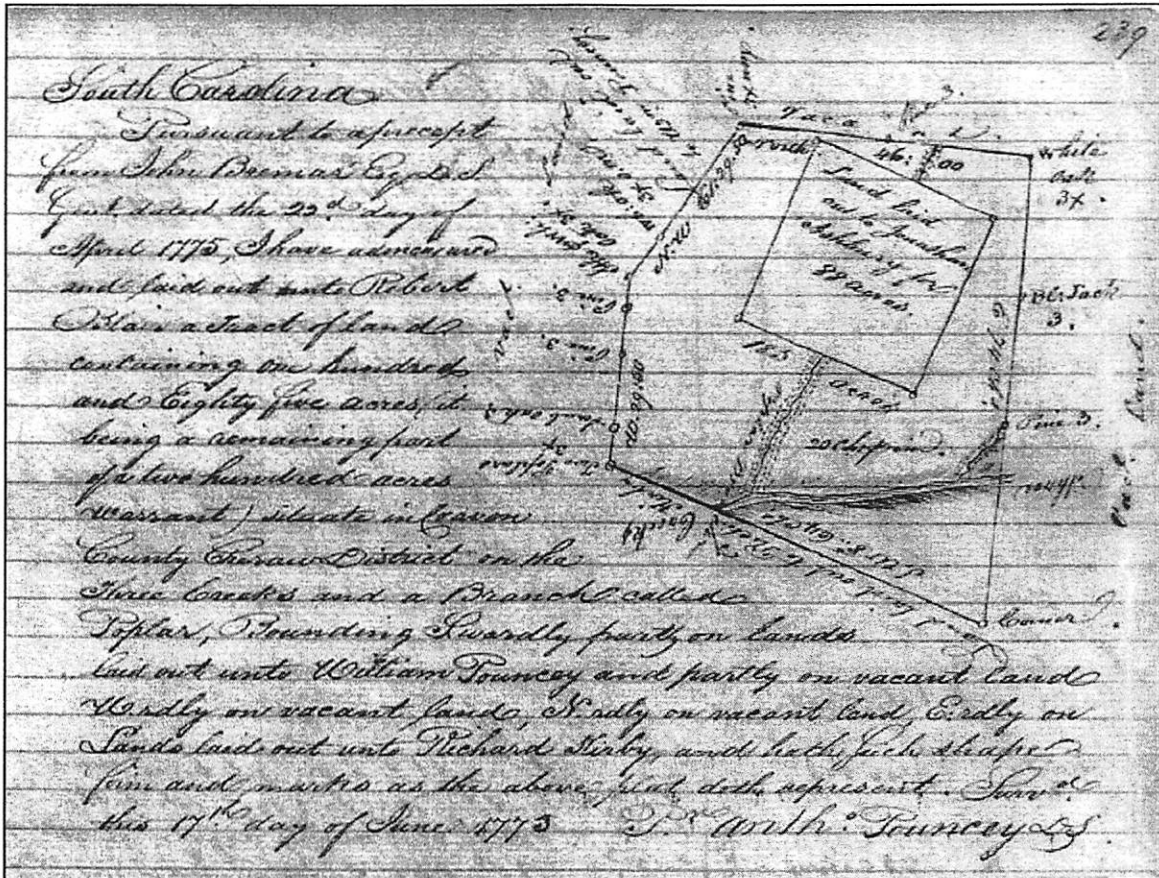 239
South Carolina
Pursuant to a precept
from John Bremar Esq. D. S.
Genl. dated the 22d. day of
April 1775, I have admeasured
and laid out unto Robert
Blair a tract of land
containing one hundred
and Eighty five acres, it
being a remaining part
of a two hundred acres
Warrant) situate in Craven
County Cheraw District on the
Three Creeks and a Branch called
Poplar, Bounding Swardly partly on lands
laid out unto William Pouncey and partly on vacant land
Wardly on vacant land, N.rdly on vacant land, E.rdly on
Lands laid out unto Richard Kirby, and hath such shape
form and marks as the above plat doth represent. Survd.
this 17th day of June 1775 Pr. Antho. Pouncey D S
White
Oak
3x.
46: 00
Land laid
out to
Ashbury for
88 acres.
Bl: Jack
3.
185
acres
20 chs. pr in.
Pine 3.
Pine 3.
Pine 3.
Corner
Vact. Land.
Vact.